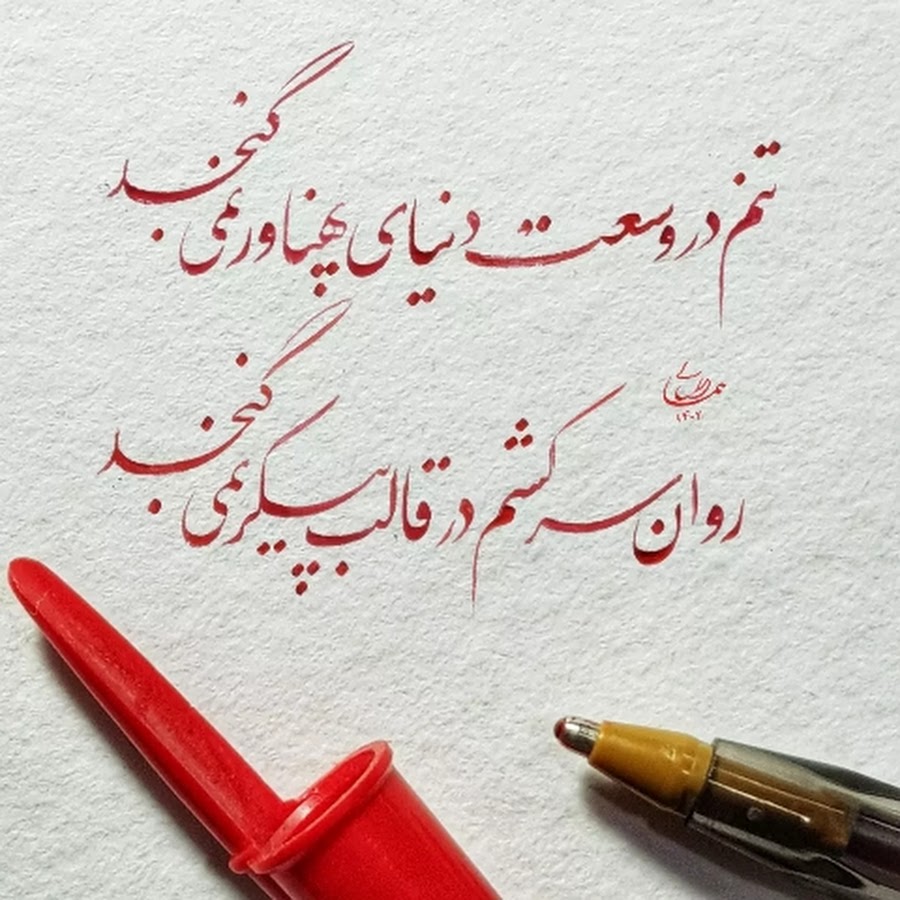 تنم در وسعت دنیای پهناور نمی گنجد
روان سرکشم در قالب پیکر نمی گنجد
۱۴۰۲